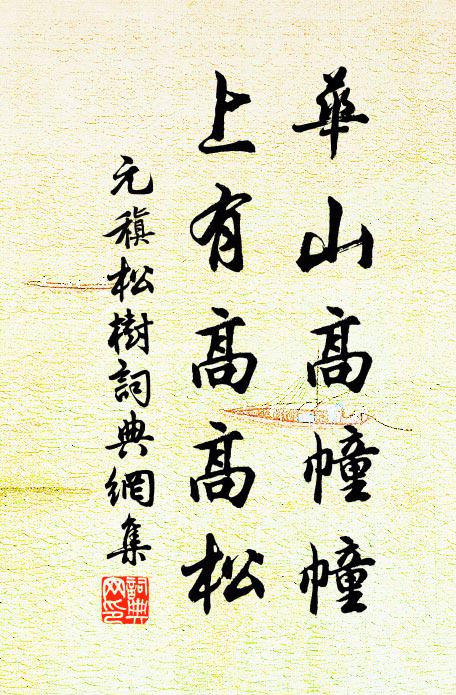 華山高幢幢
上有高高松
元稹松樹詞典網集
詞典網印